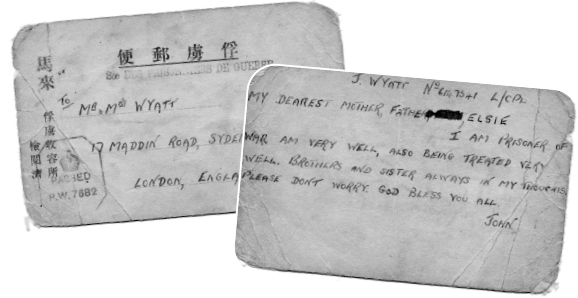 俘虜郵便
SCE DES PRISONNIERS DE GUERRE
馬來
俘虜收容所
檢閲濟
To MR. MRS WYATT
17 MADDIN ROAD, SYDEN
LONDON, ENGLA
PASSED
P.W. 7682
J. WYATT No L/CPL
MY DEAREST MOTHER, FATHER, ELSIE
I AM PRISONER OF
WAR AM VERY WELL, ALSO BEING TREATED VERY
WELL. BROTHERS AND SISTER ALWAYS IN MY THOUGHTS
PLEASE DON'T WORRY. GOD BLESS YOU ALL
JOHN